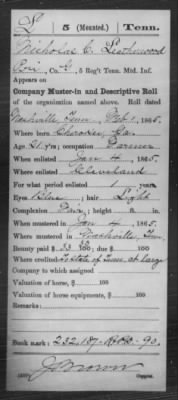 L 5 (Mounted.) Tenn.
Nicholas C. Leatherwood
Pvt., Co. G, 5 Reg't Tenn. Mtd. Inf.
Appears on
Company Muster-in and Descriptive Roll
of the organization named above. Roll dated
Nashville, Tenn. Feb. 1, 1865.
Where born Cherokee, Ga.
Age 21 y'rs; occupation Farmer
When enlisted Jan 4, 1865.
Where enlisted Cleveland
For what period enlisted 1 years.
Eyes Blue; hair Light
Complexion Fair; height ft. in.
When mustered in Jan 4, 1865.
Where mustered in Nashville, Tenn.
Bounty paid $ 33 100; due $ 100
Where credited State of Tenn at large
Company to which assigned
Valuation of horse, $ 100
Valuation of horse equipments, $ 100
Remarks:
Book mark: 232,187-R&P-90.
Brown
Copyist.